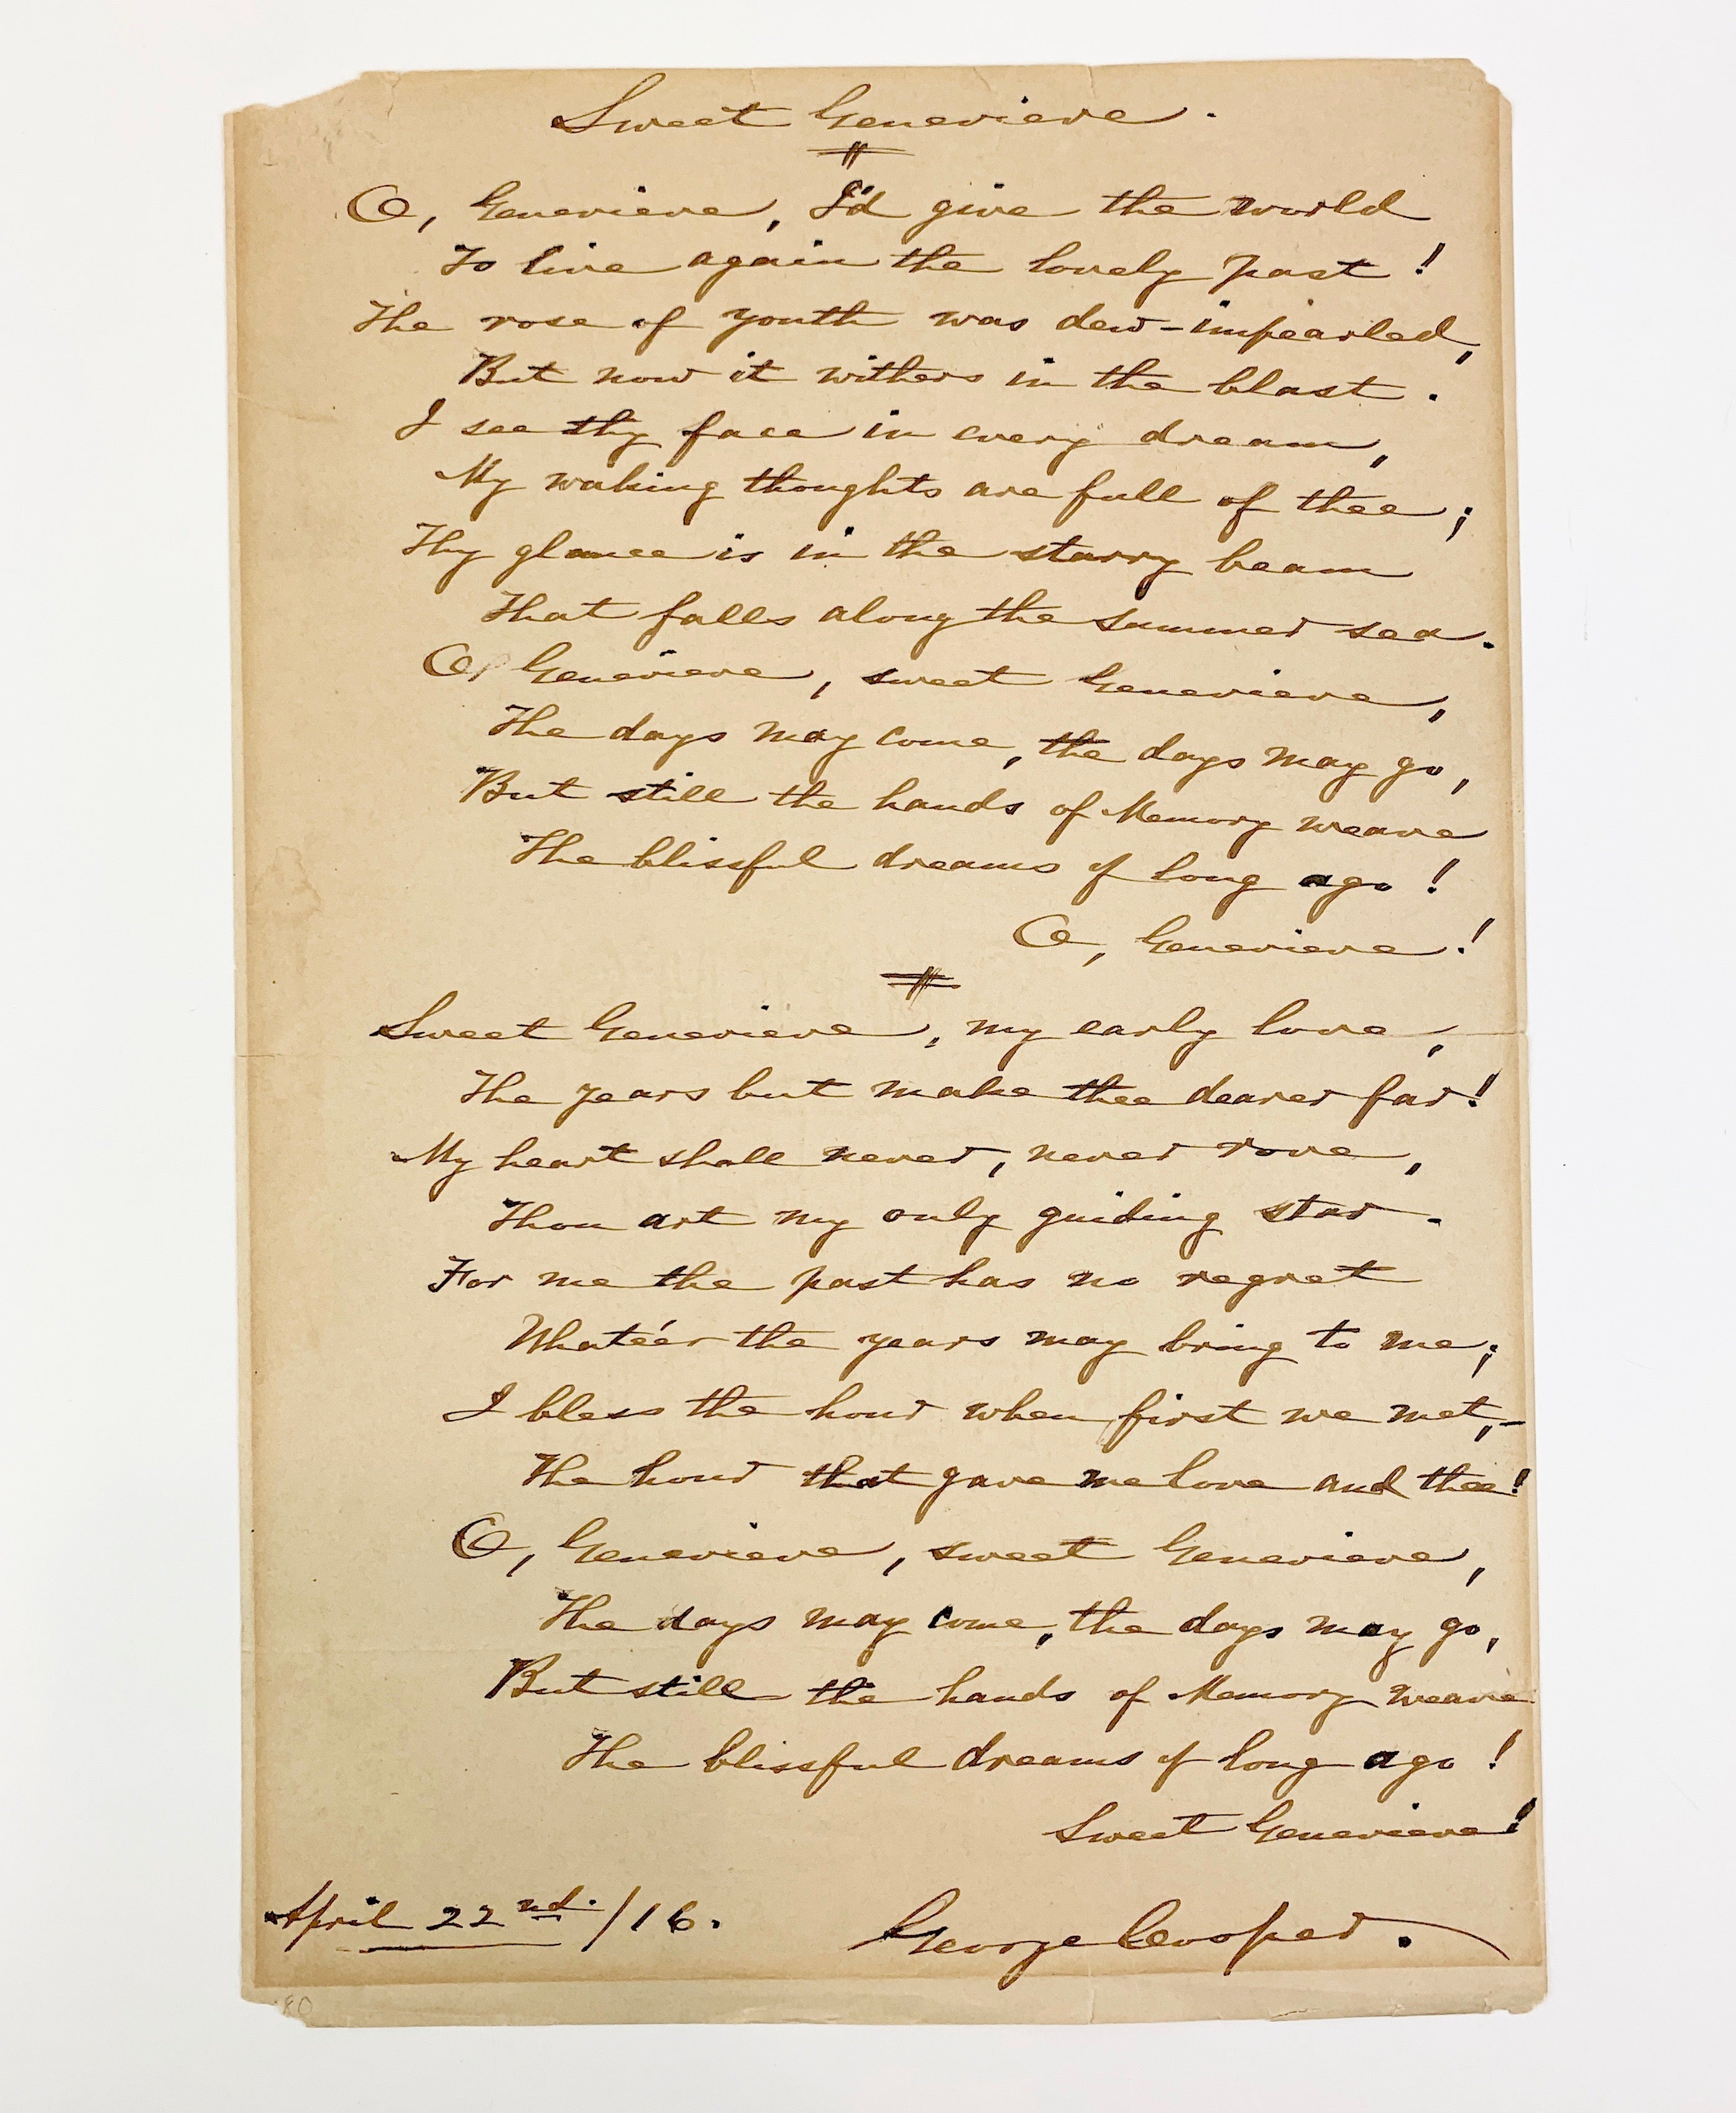 Sweet Genevieve.
O, Genevieve, I'd give the world
To live again the lovely past!
The rose of youth was dew-impearled,
But now it withers in the blast.
I see thy face in every dream,
My waking thoughts are full of thee;
Thy glance is in the starry beam
That falls along the summer sea.
O, Genevieve, sweet Genevieve,
The days may come, the days may go,
But still the hands of Memory weave
The blissful dreams of long ago!
O, Genevieve!
Sweet Genevieve, my early love,
The years but make thee dearer far!
My heart shall never, never rove,
Thou art my only guiding star.
For me the past has no regret
Whate'er the years may bring to me;
I bless the hour when first we met,—
The hour that gave me love and thee!
O, Genevieve, sweet Genevieve,
The days may come, the days may go,
But still the hands of Memory weave
The blissful dreams of long ago!
Sweet Genevieve!
April 22nd./16.
George Cooper.
80